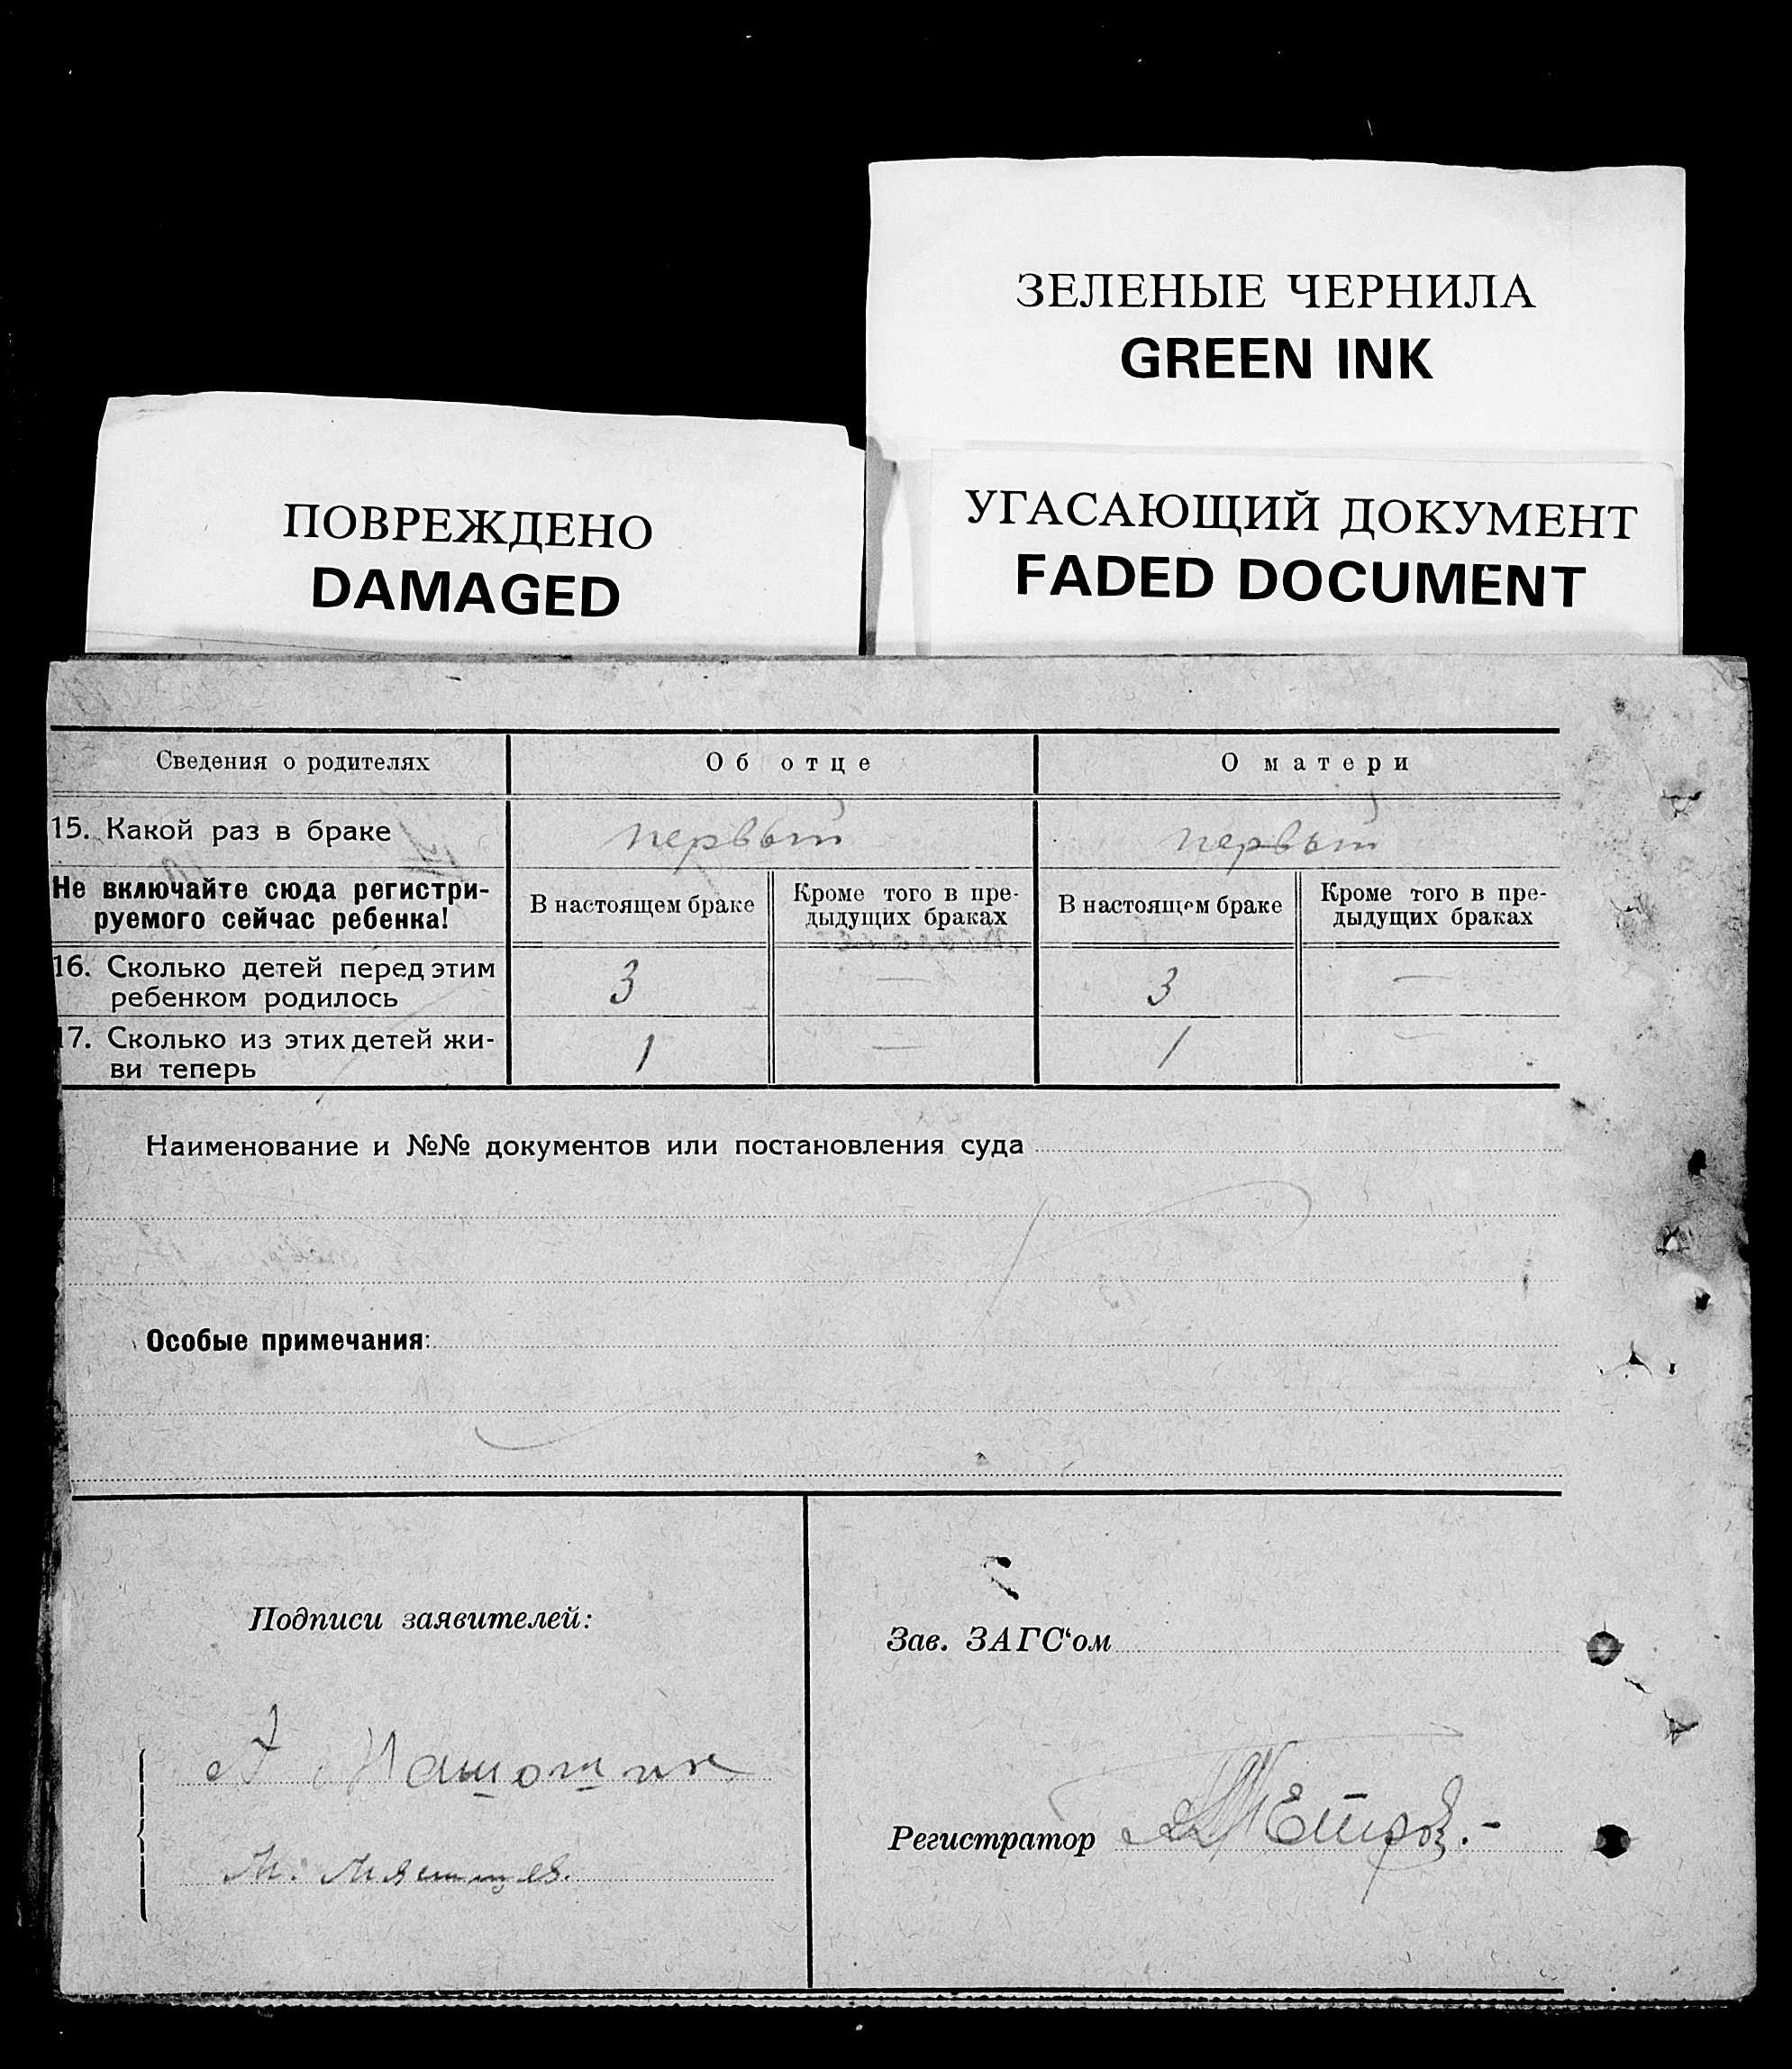 ЗЕЛЕНЫЕ ЧЕРНИЛА
GREEN INK
ПОВРЕЖДЕНО
DAMAGED
УГАСАЮЩИЙ ДОКУМЕНТ
FADED DOCUMENT
Сведения о родителях Об отце О матери
15. Какой раз в браке первый первый
Не включайте сюда регистри-
руемого сейчас ребенка!
В настоящем браке
Кроме того в пре-
дыдущих браках
В настоящем браке
Кроме того в пре-
дыдущих браках
16. Сколько детей перед этим
ребенком родилось
3 — 3 —
17. Сколько из этих детей жи-
ви теперь
1 — 1 —
Наименование и №№ документов или постановления суда
Особые примечания:
Подписи заявителей:
Зав. ЗАГС‘ом
Регистратор